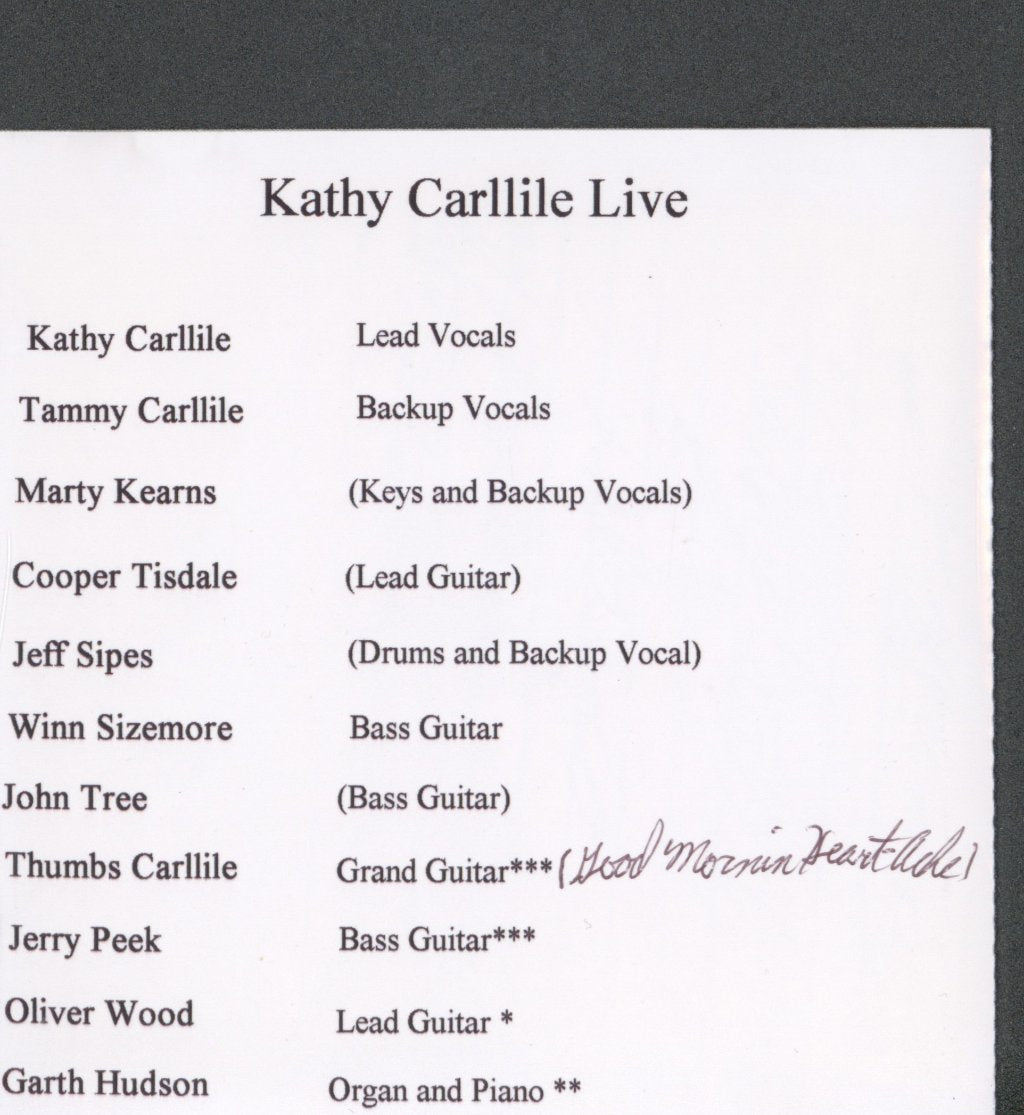 Kathy Carllile Live
Kathy Carllile Lead Vocals
Tammy Carllile Backup Vocals
Marty Kearns (Keys and Backup Vocals)
Cooper Tisdale (Lead Guitar)
Jeff Sipes (Drums and Backup Vocal)
Winn Sizemore Bass Guitar
John Tree (Bass Guitar)
Thumbs Carllile Grand Guitar*** (Good Mornin Heart Ache)
Jerry Peek Bass Guitar***
Oliver Wood Lead Guitar *
Garth Hudson Organ and Piano **